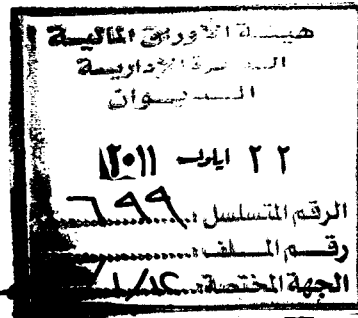 هيئة الأوراق المالية
الدائرة الإدارية
الديوان
٢٢ ايلول ٢٠١١
الرقم المتسلسل ٦٩٩
رقم الملف
الجهة المختصة